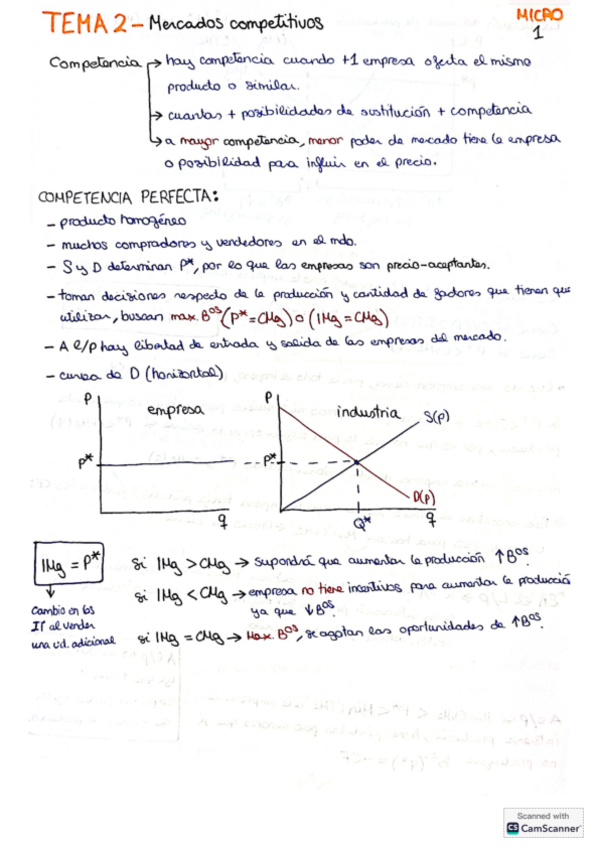 TEMA 2 - Mercados competitivos
MICRO
1
Competencia → hay competencia cuando +1 empresa oferta el mismo
producto o similar.
→ cuantas + posibilidades de sustitución + competencia
→ a mayor competencia, menor poder de mercado tiene la empresa
o posibilidad para influir en el precio.
COMPETENCIA PERFECTA:
- producto homogéneo
- muchos compradores y vendedores en el mdo.
- S y D determinan P*, por lo que las empresas son precio-aceptantes.
- toman decisiones respecto de la producción y cantidad de factores que tienen que
utilizar, buscan max. Bᴼˢ (P* = CMg) o (IMg = CMg)
- A l/p hay libertad de entrada y salida de las empresas del mercado.
- curva de D (horizontal)
P
empresa
P*
q
P
industria
S(p)
P*
D(p)
Q*
q
IMg = P*
si IMg > CMg → supondrá que aumentar la producción ↑ Bᴼˢ.
si IMg < CMg → empresa no tiene incentivos para aumentar la producció
ya que ↓ Bᴼˢ.
si IMg = CMg → Max. Bᴼˢ, se agotan las oportunidades de ↑ Bᴼˢ.
Cambio en los
IT al vender
una ud. adicional
Scanned with
CS CamScanner